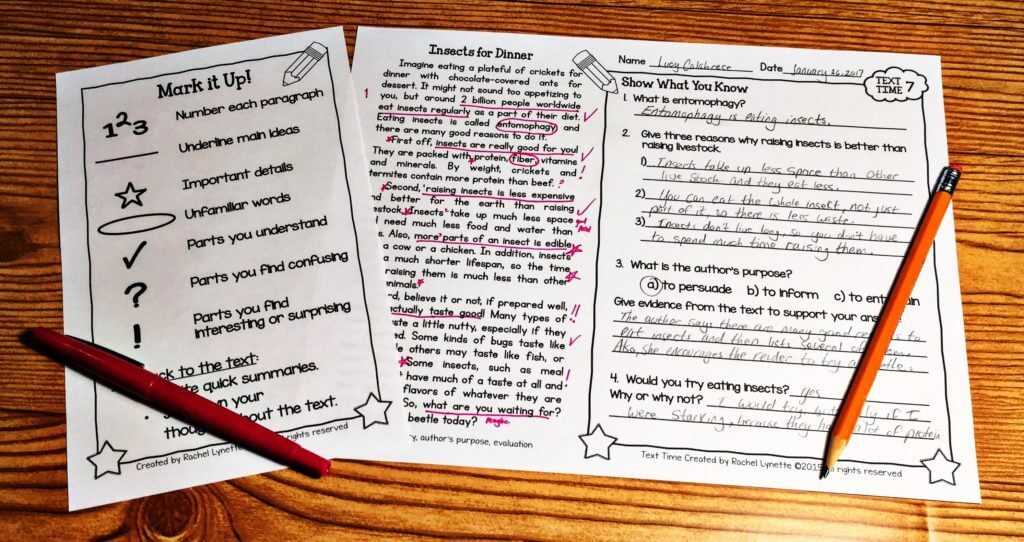 Mark it Up!
123
Number each paragraph
Underline main ideas
Important details
Unfamiliar words
Parts you understand
?
Parts you find confusing
!
Parts you find
interesting or surprising
ck to the text:
quick summaries.
n your
thou bout the text.
Created by Rachel Lynette ghts reserved
Insects for Dinner
1
Imagine eating a plateful of crickets for
dinner with chocolate-covered ants for
dessert. It might not sound too appetizing to
you, but around 2 billion people worldwide
eat insects regularly as a part of their diet.
Eating insects is called entomophagy and
there are many good reasons to do it.
First off, insects are really good for you!
They are packed with protein, fiber, vitamins
and minerals. By weight, crickets and
termites contain more protein than beef.
Second, raising insects is less expensive
and better for the earth than raising
estock. Insects take up much less space
need much less food and water than
s. Also, more parts of an insect is edible
a cow or a chicken. In addition, insects
a much shorter lifespan, so the time
raising them is much less than other
nimals.
rd, believe it or not, if prepared well,
ctually taste good! Many types of
ste a little nutty, especially if they
ed. Some kinds of bugs taste like
e others may taste like fish, or
Some insects, such as meal
have much of a taste at all and
flavors of whatever they are
So, what are you waiting for?
beetle today? maybe
y, author's purpose, evaluation
Name Lucy Calabrese Date January 26, 2017
TEXT
TIME 7
Show What You Know
1. What is entomophagy?
Entomophagy is eating insects.
2. Give three reasons why raising insects is better than
raising livestock.
1) Insects take up less space than other
live stock and they eat less.
2) You can eat the whole insect, not just
part of it, so there is less waste.
3) Insects don't live long, so you don't have
to spend much time raising them.
3. What is the author's purpose?
a) to persuade b) to inform c) to ent in
Give evidence from the text to support your ans
The author says there are many good re to
eat insects and then lists several of them.
Also, she encourages the reader to try a
4. Would you try eating insects? yes
Why or why not? I would try if I
were starving, because they ha lot of protein
Text Time Created by Rachel Lynette ©2015 rights reserved